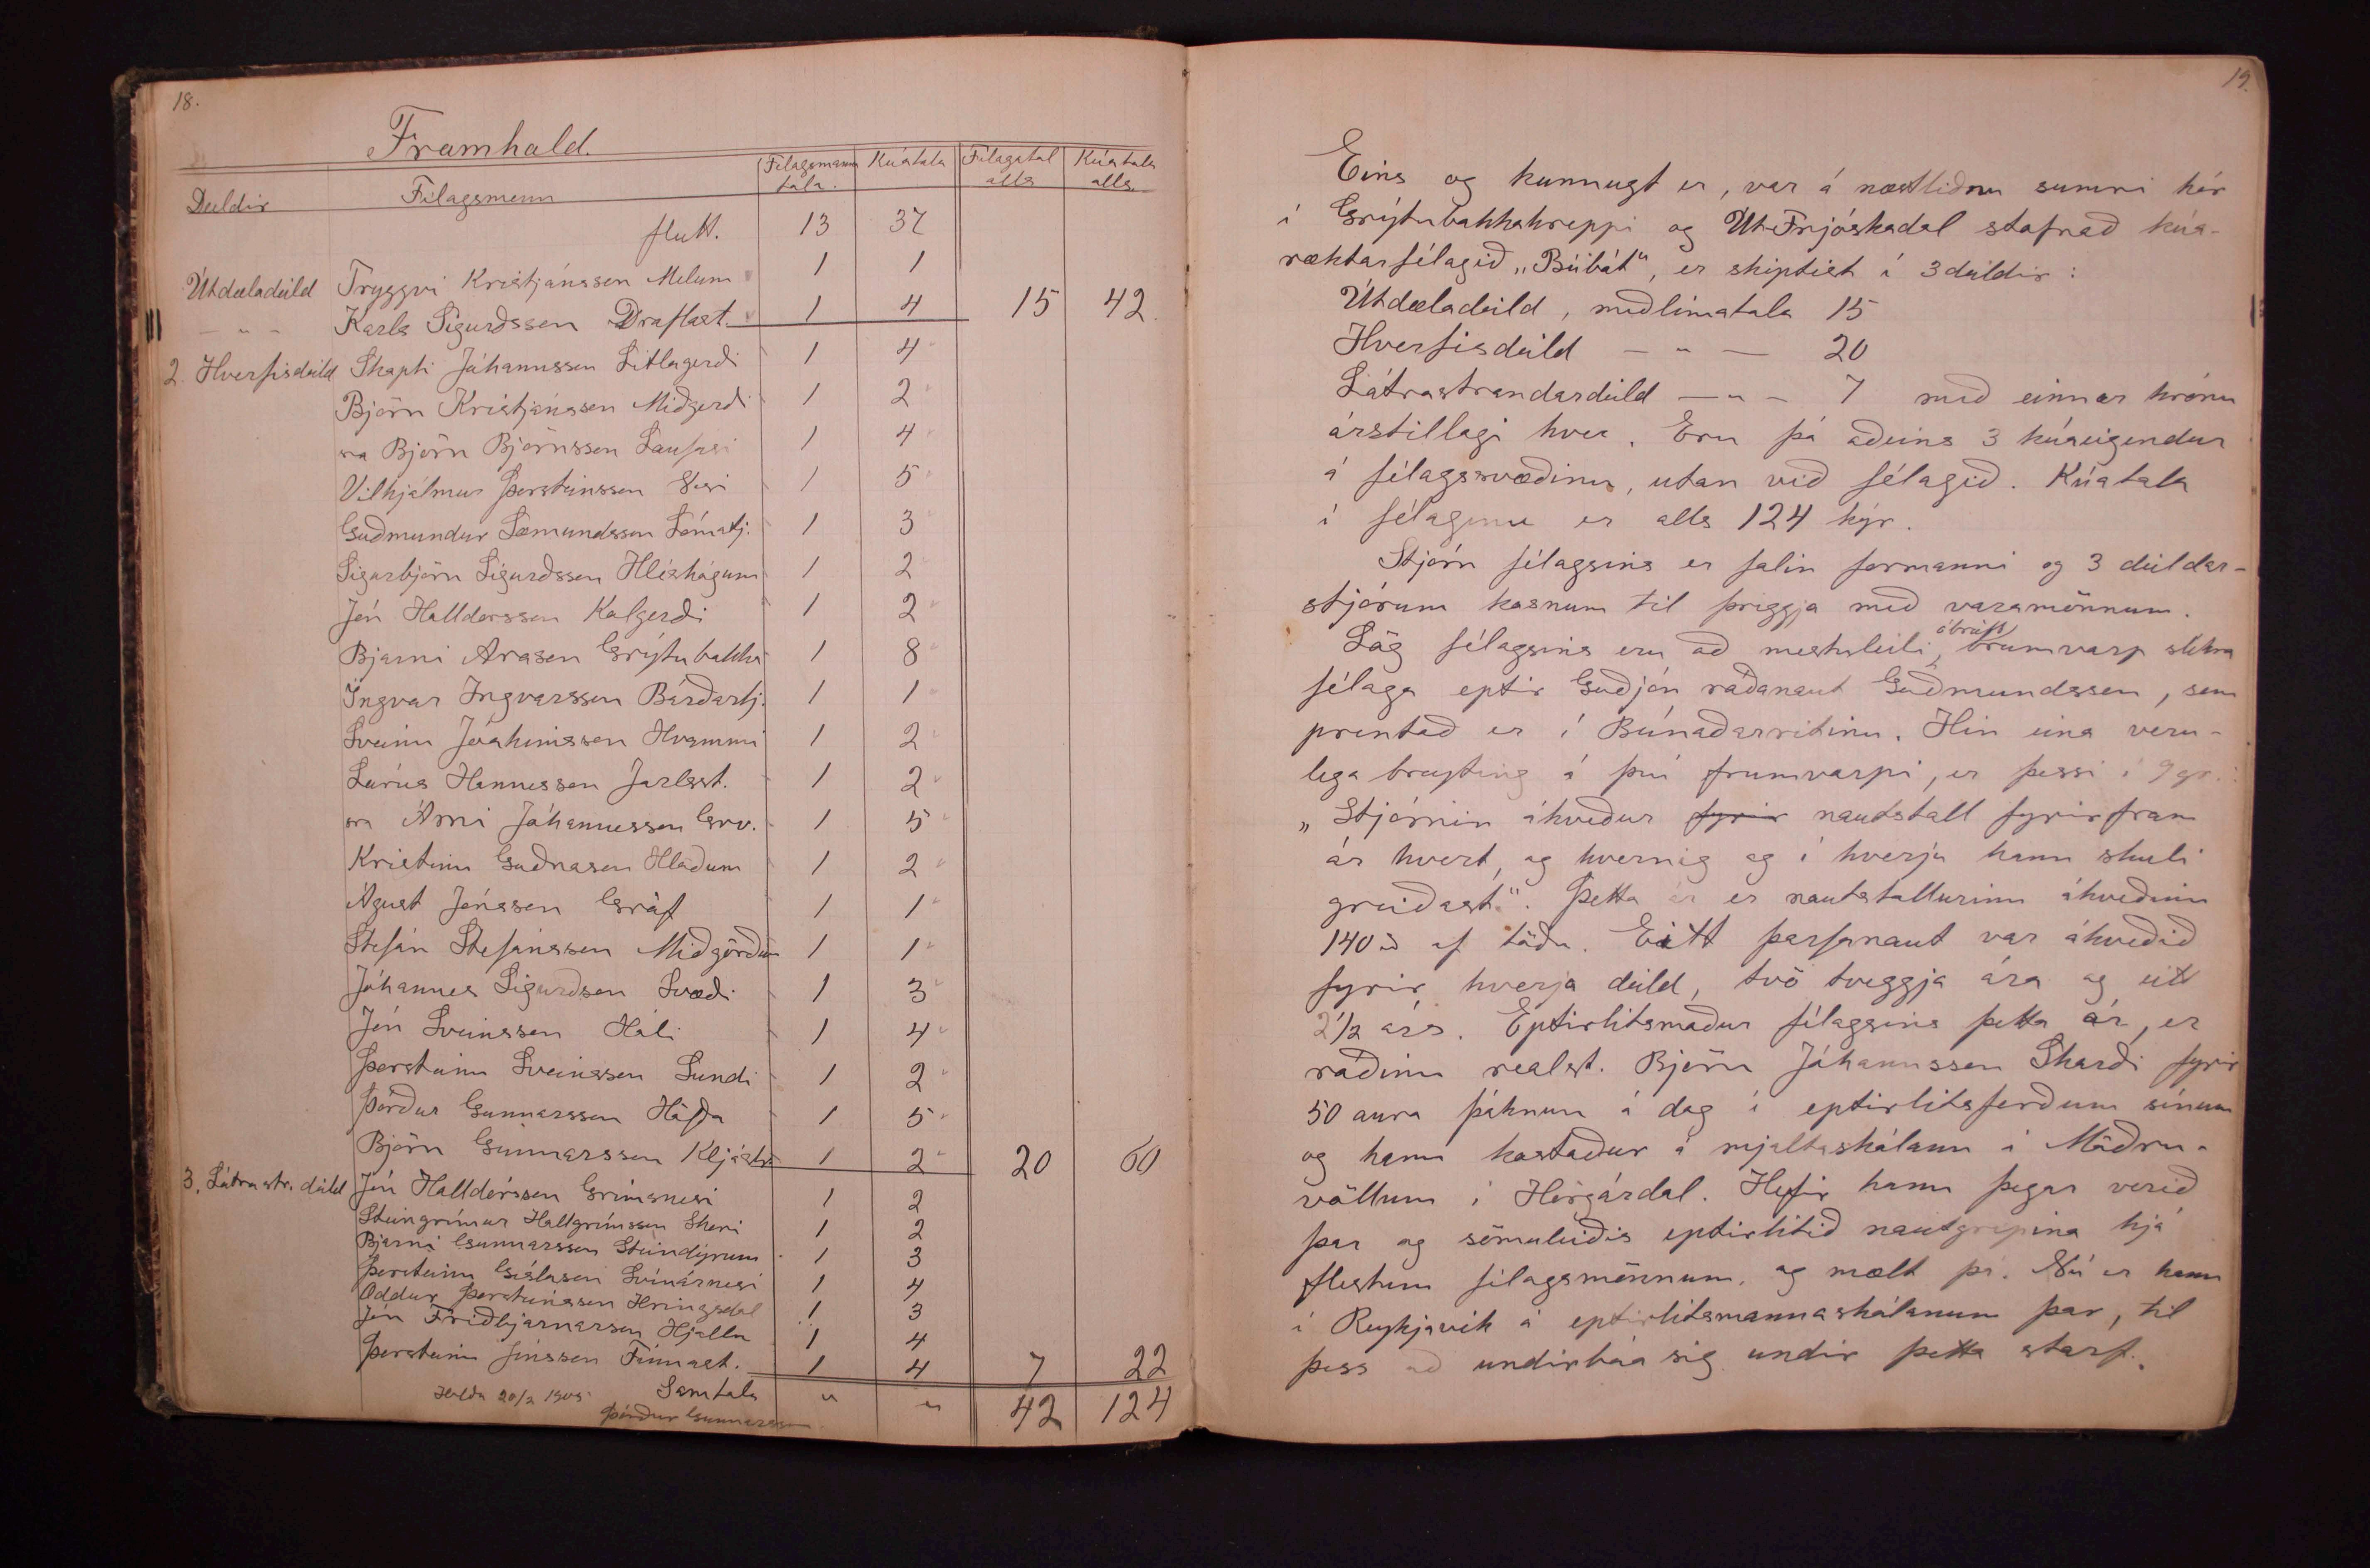 18.
Framhald.
Deildir Félagsmenn Félagsmanna tala. Kúatala Félagatal alls Kúatala alls.
flutt. 13 37
Útdæladeild Tryggvi Kristjánsson Melum 1 1
— „ - Karls Sigurðsson Draflast. 1 4 15 42.
2. Hverfisdeild Skapti Jóhannsson Litlagerði 1 4
Björn Kristjánsson Miðgerði 1 2
sra Björn Björnsson Laufási 1 4
Vilhjálmur Þorsteinsson Nesi 1 5
Guðmundur Sæmundsson Lómatj. 1 3
Sigurbjörn Sigurðsson Hléskógum 1 2
Jón Halldorsson Kolgerði 1 2
Bjarni Arason Grýtubakka 1 8
Ingvar Ingvarsson Bárðartj. 1 1
Sveinn Jóakimsson Hvammi 1 2
Lárus Hannesson Jarlsst. 1 2
sra Árni Jóhannesson Grv. 1 5
Kristinn Guðnason Hlöðum 1 2
Águst Jónsson Gröf 1 1
Stefán Stefánsson Miðgörðum 1 1
Jóhannes Sigurðson Svæði 1 3
Jón Sveinsson Hóli 1 4
Þorsteinn Sveinsson Lundi 1 2
Þórður Gunnarsson Höfða 1 5
Björn Gunnarsson Kljástr. 1 2 20 60
3. Látrastr. deild Jón Halldórsson Grímsnesi 1 2
Steingrímur Hallgrímsson Skeri 1 2
Bjarni Gunnarsson Steindyrum 1 3
Þorsteinn Gíslason Svínárnesi 1 4
Oddur Þorsteinsson Hringsdal 1 3
Jón Friðbjarnarson Hjalla 1 4
Þorsteinn Jónsson Finnast. 1 4 7 22
Höfða 20/2 1905 Samtals „ „ 42 124
Þórður Gunnarsson
19.
Eins og kunnugt er, var á næstliðnu sumri hér
í Grýtubakkahreppi og Út-Fnjóskadal stofnað kúa-
ræktarfélagið „Búbót“, er skiptist í 3 deildir:
Útdæladeild, meðlimatala 15
Hverfisdeild — „ — 20
Látrastrandardeild — „ — 7 með einnar krónu
árstillagi hver. Eru þá aðeins 3 kúaeigendur
á félagssvæðinu, utan við félagið. Kúatala
í félaginu er alls 124 kýr.
Stjórn félagsins er falin formanni og 3 deildar-
stjórum kosnum til þriggja með varamönnum.
Lög félagsins eru að mestuleiti, óbreytt frumvarp slikra
félaga eptir Guðjón ráðanaut Guðmundsson, sem
prentað er í Búnaðarritinu. Hin eina veru-
lega breyting á því frumvarpi, er þessi í 9 gr.:
„Stjórnin ákveður fyrir nautstoll fyrirfram
ár hvert, og hvernig og í hverju hann skuli
greiðast“. Þetta ár er nautstollurinn ákveðinn
140 ℔ af töðu. Eitt þarfanaut var ákveðið
fyrir hverja deild, tvö tveggja ára og eitt
2 1/2 árs. Eptirlitsmaður félagsins þetta ár, er
ráðinn realst. Björn Jóhannsson Skarði fyrir
50 aura þóknun á dag í eptirlitsferðum sínum
og hann kostaður á mjaltaskólann á Möðru-
völlum í Hörgárdal. Hefir hann þegar verið
þar og sömuleiðis eptirlitið nautgripina hjá
flestum félagsmönnum, og mælt þá. Nú er hann
í Reykjavík á eptirlitsmannaskólanum þar, til
þess að undirbúa sig undir þetta starf.